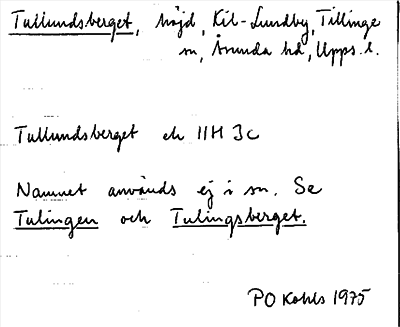 Tullundsberget, höjd, Kil-Lundby, Tillinge
sn, Åsunda hd, Upps. l.
Tullundsberget ek 11H 3c
Namnet används ej i sn. Se
Tulingen och Tulingsberget.
PO Kohls 1975